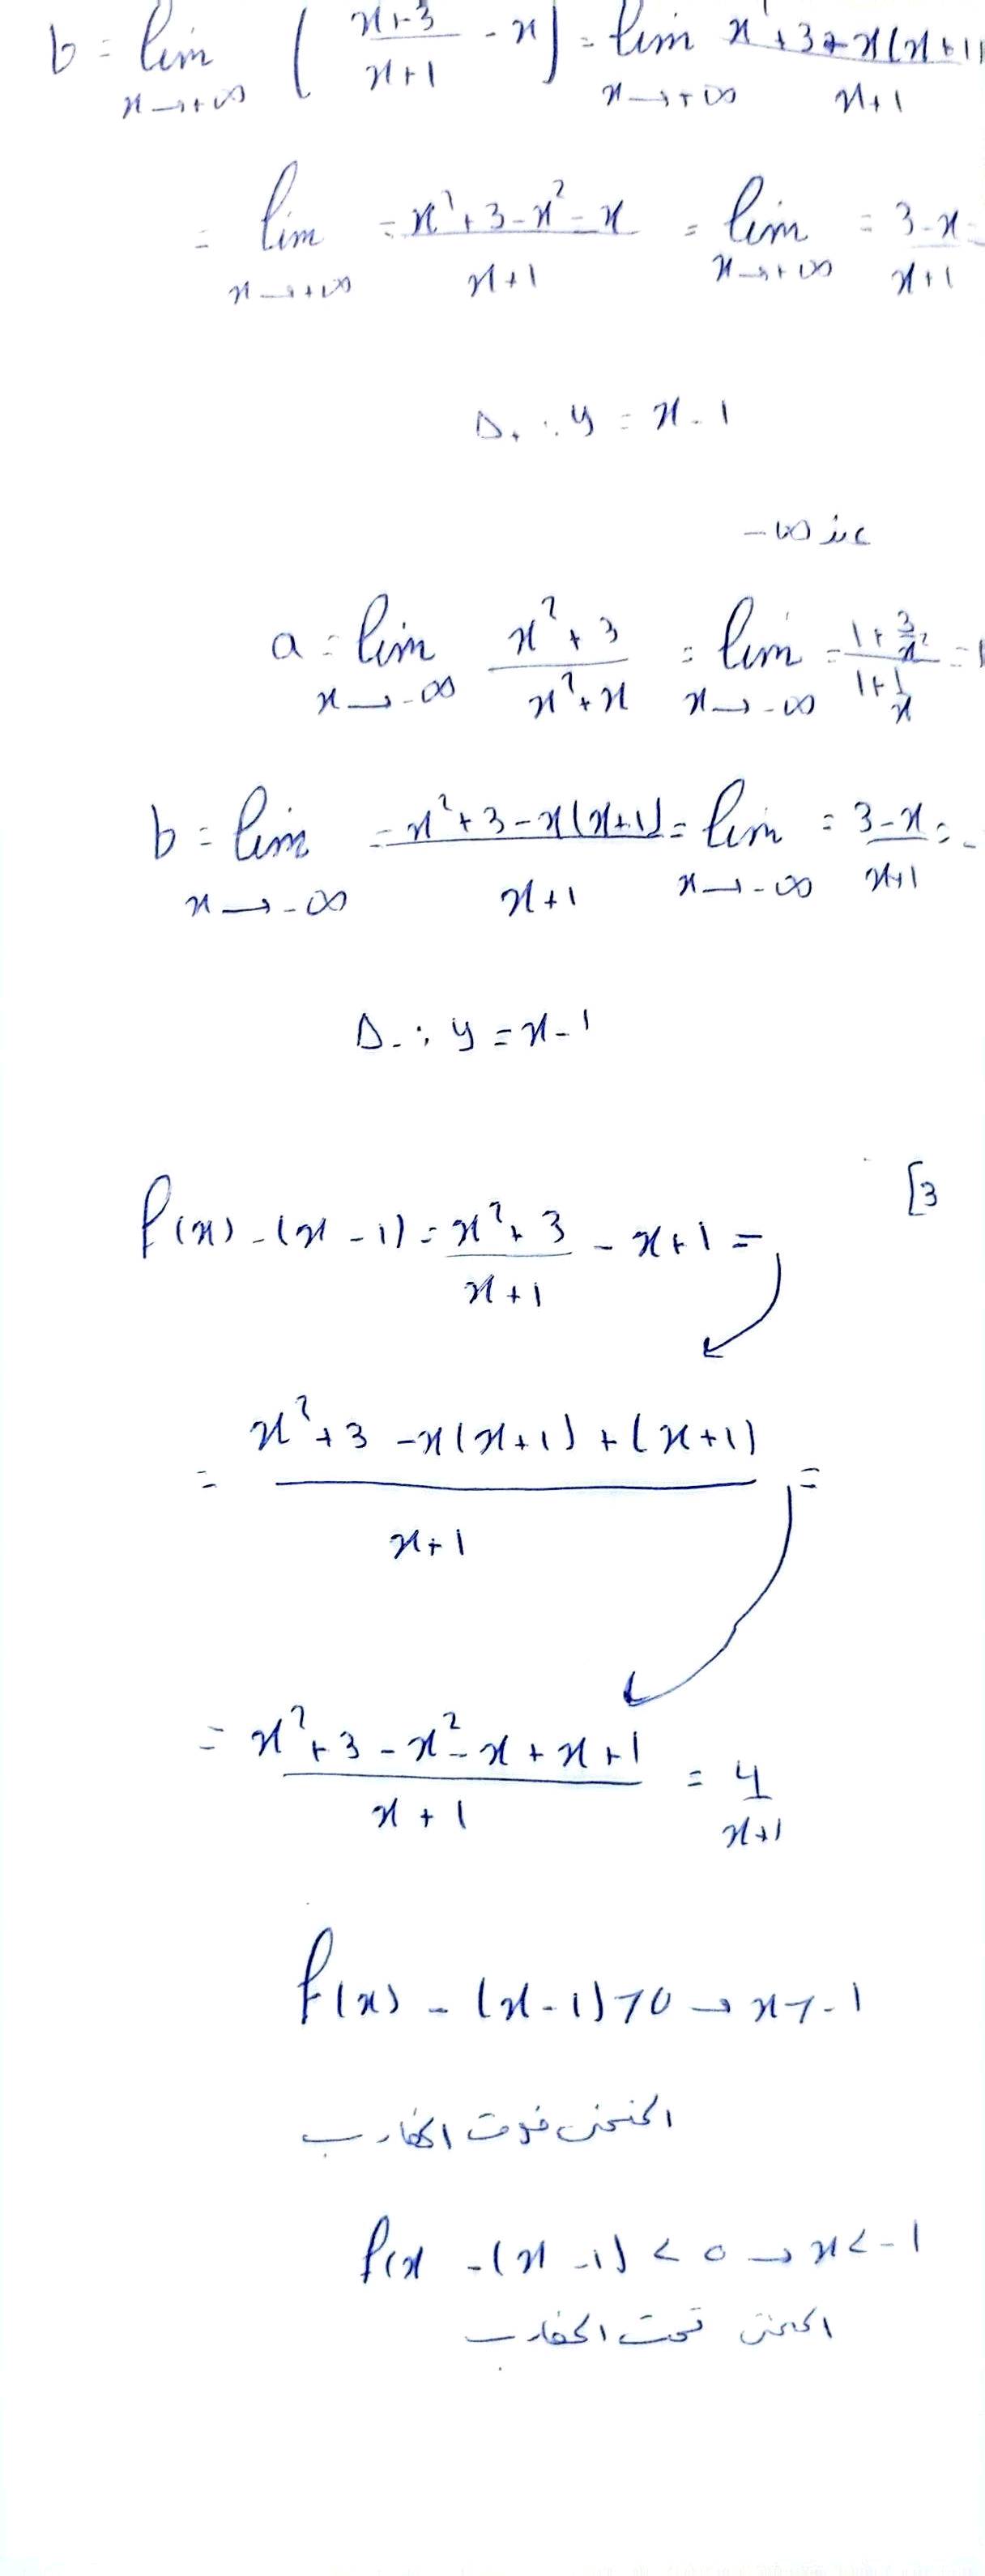 b = lim x→+∞ ( x+3 / x+1 - x ) = lim x→+∞ x²+3 - x(x+1) / x+1
= lim x→+∞ = x²+3-x²-x / x+1 = lim x→+∞ = 3-x / x+1 =
Δ+ : y = x-1
عند -∞
a = lim x→-∞ x²+3 / x²+x = lim x→-∞ = 1+3/x² / 1+1/x = 1
b = lim x→-∞ = x²+3-x(x+1) / x+1 = lim x→-∞ = 3-x / x+1 = -
Δ- : y = x-1
[3
f(x) - (x-1) = x²+3 / x+1 - x+1 =
= x²+3 -x(x+1) + (x+1) / x+1 =
= x²+3-x²-x+x+1 / x+1 = 4 / x+1
f(x) - (x-1) > 0 → x > -1
المنحنى فوق المقارب
f(x - (x-1) < 0 → x < -1
المنحنى تحت المقارب